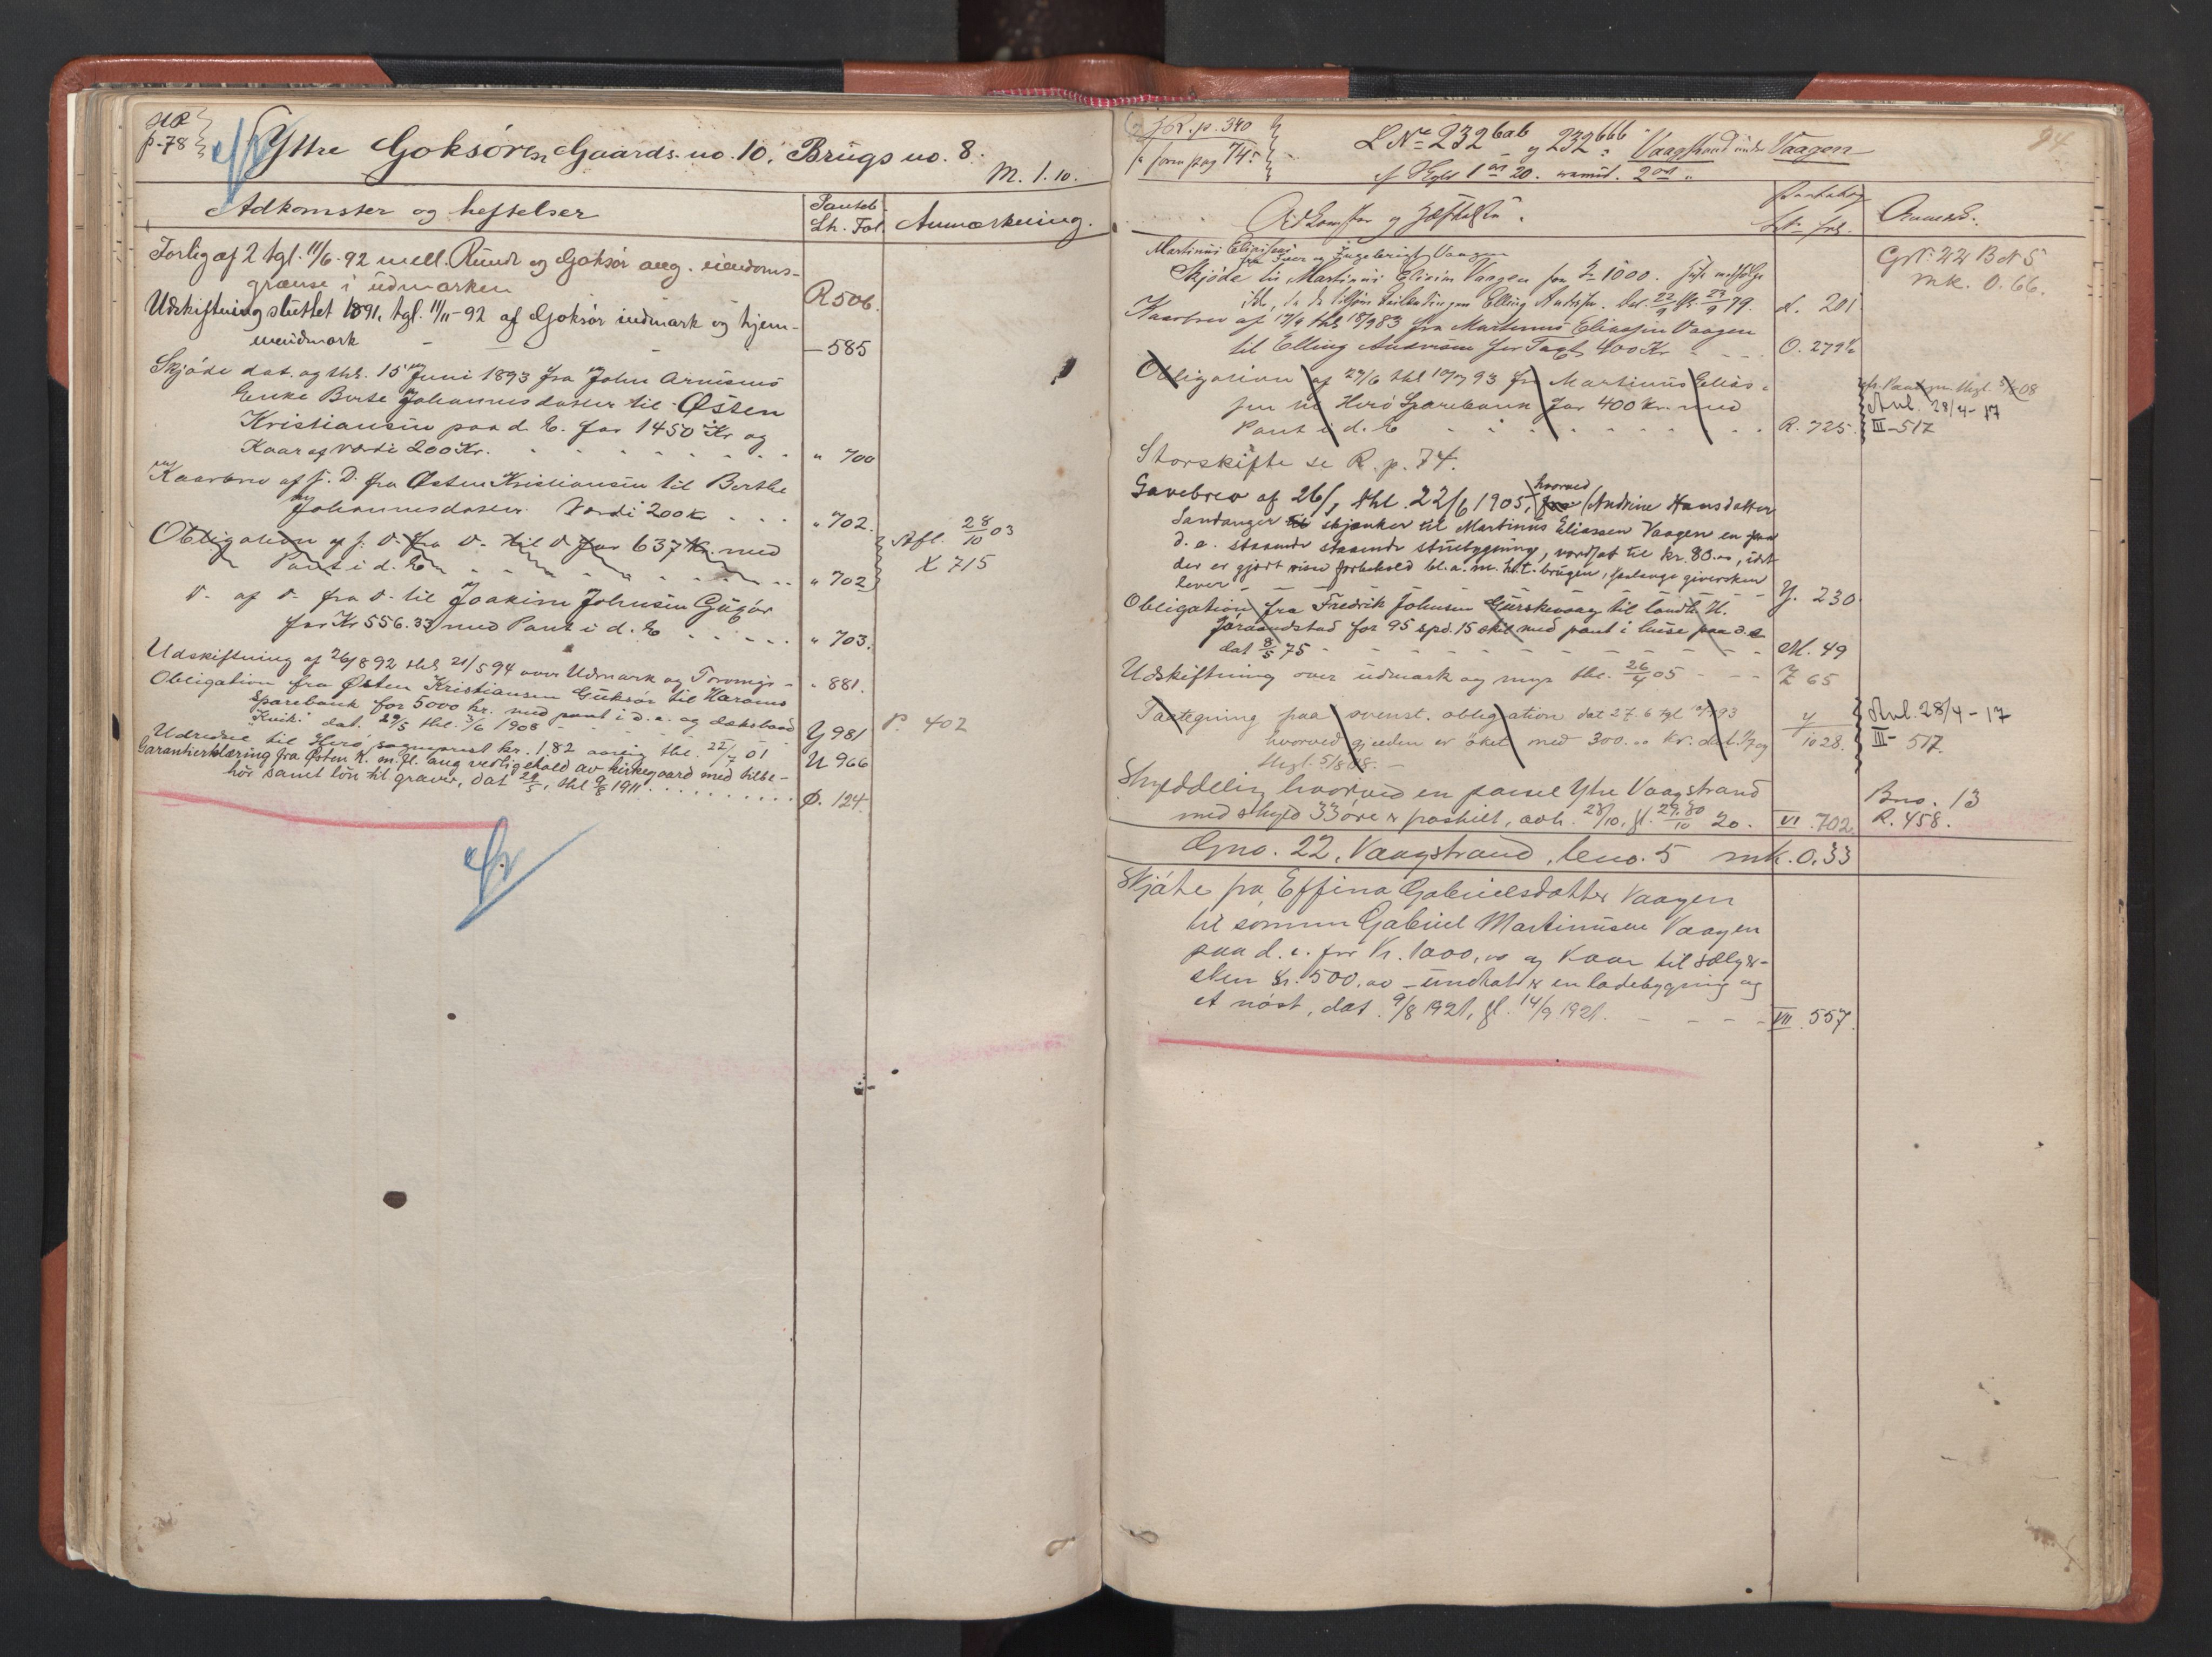 HR
p-78
Yttre Goksören Gaards. no. 10. Brugs no. 8.
M. 1.10.
Adkomster og heftelser
Panteb.
Lh. Fol.
Anmærkning.
Forlig af 2 tgl. 11/6-92 mell. Runde og Goksör ang. eiendoms-
grænse i udmarken
R 506.
Udskiftning sluttet 1891, tgl. 11/11-92 af Goksör indmark og hjem-
meudmark - - - -
— 585
Skjöde dat. og thl. 15 Juni 1893 fra John Arnesens
Enke Berte Johannesdatter til Østen
Kristiansen paa d. E. for 1450 Kr og
Kaar og værdi 200 Kr.
" 700
Kaarbrev af s. D. fra Østen Kristiansen til Berthe
Johannesdatter. Værdi 200 Kr
" 702.
Obligation af s. D. fra D. til D for 637 Kr. med
Pant i d. E
" 702
Afl. 28/10 03
X 715
D. af D. fra D. til Joakim Johnsen Gügör
for Kr 556.33 med Pant i d. E
" 703.
Udskiftning af 26/8 92 thl 21/5 94 over Udmark og Torvmyr -
" 881.
Obligation fra Østen Kristiansen Guksør til Harams
Sparebank for 5000 kr. med pant i d. e. og dæksbaad
"Kvik" dat. 29/5 thl. 3/6 1908
Y 981
P. 402
Udredse til Herø sogneprest kr. 1.82 aarlig thl. 22/7 01
U 966
Garantierklæring fra Østen K. m. fl. ang vedligehold av kirkegaard med tilbe-
hör samt lön til graver, dat 29/5, thl 9/8 1911
Ø. 124.
R. p. 340
f. form pag 745
L No 232 bab og 232 bbb Vaagstrand under Vaagen
af Skyld 1 ort 20.
94
Adkomster og Hæftelser.
Pantebog
Lit. Fol.
Anmærk.
Martinus Eliassens
fra Iver og Ingebrigt Vaagen
Skjöde til Martinus Eliesen Vaagen for Kr 1000.
Elling Andersen. Dat. 22/9 thl. 23/9 79.
N. 201
GNo 22 BNo 5
Mk. 0.66.
Kaarbrev af 17/9 thl 18/9 83 fra Martinus Eliassen Vaagen
til Elling Andersen for Taxt 400 Kr
O. 279 1/2
Obligation af 27/6 thl 10/7 93 fra Martinus Elias-
sen til Herö Sparebank for 400 Kr. med
Pant i d. E
R. 725.
Avl. 28/4-17
III-517
Storskifte se R. p. 74.
Gavebrev af 26/1 thl. 22/6 1905, hvorved Andrine Hansdatter
Sandanger skjænker til Martinus Eliassen Vaagen en paa
d. e. staaende staaende stuebygning, værdsat til kr. 80.00, idet
der er gjort visse forbehold bl. a. m. h. t. brugen, saalænge giversken
lever
Y. 230
Obligation fra Fredrik Johnsen Gurskevaag til landh. H.
Jøraandstad for 95 spd. 15 skil med pant i huse paa d. e
dat 8/5 75
M. 49
Udskiftning over udmark og myr thl. 26/4 05
Z 65
Paategning paa ovenst. obligation dat 27.6 tgl 10/7 93
hvorved gjælden er øket med 300.00 kr. dat. 1/7 og
thgl. 5/8 08. —
Y
1028.
Avl. 28/4-17
III- 517.
Skylddeling hvorved en parsel Ytre Vaagstrand
med skyld 33 øre er fraskilt, avh. 28/10, gl. 29.30/10 20.
VI. 702
Bno. 13
R. 458.
Gno. 22, Vaagstrand, bno. 5 mk. 0,33
Skjøte fra Effina Gabrielsdatter Vaagen
til sønnen Gabriel Martinusen Vaagen
paa d. e. for Kr. 1000,00 og kaar til sælger-
sken kr. 500,00 - undtat er en ladebygning og
et nøst, dat. 9/8 1921, gl. 14/9 1921.
VII. 557.